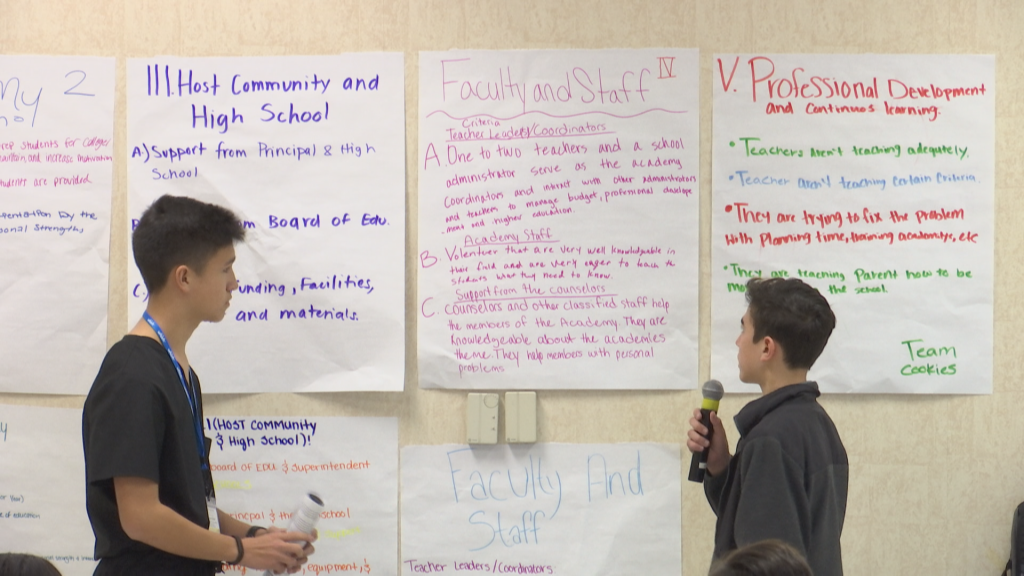 2
students for college
maintain and increase motivation
students are provided
by the
Strengths
III. Host Community and
High School
A) Support from Principal & High
School
Board of Edu.
unding, Facilities,
and materials.
Faculty and Staff IV
Criteria
Teacher Leaders/Coordinators
A. One to two teachers and a school
administrator serve as the academy
coordinators and interact with other administrators
and teachers to manage budget, professional develope
-ment and higher education.
Academy Staff
B. Volunteer that are very well knowledgeable in
their field and are very eager to teach the
students what they need to know.
Support from the counselors
C. counselors and other classified staff help
the members of the Academy. They are
knowledgeable about the academies
theme. They help members with personal
problems
V. Professional Development
and Continuos learning.
• Teachers aren't teaching adequately.
• Teacher aren't teaching certain criteria.
• They are trying to fix the problem
with planning time, training academys, etc
• They are teaching Parent how to be
the school.
Team
Cookies
(Host Community
& High School)!
board of EDU & Superintendent
school
equipment, &
Faculty And
Staff
Teacher Leaders/Coordinators
of education